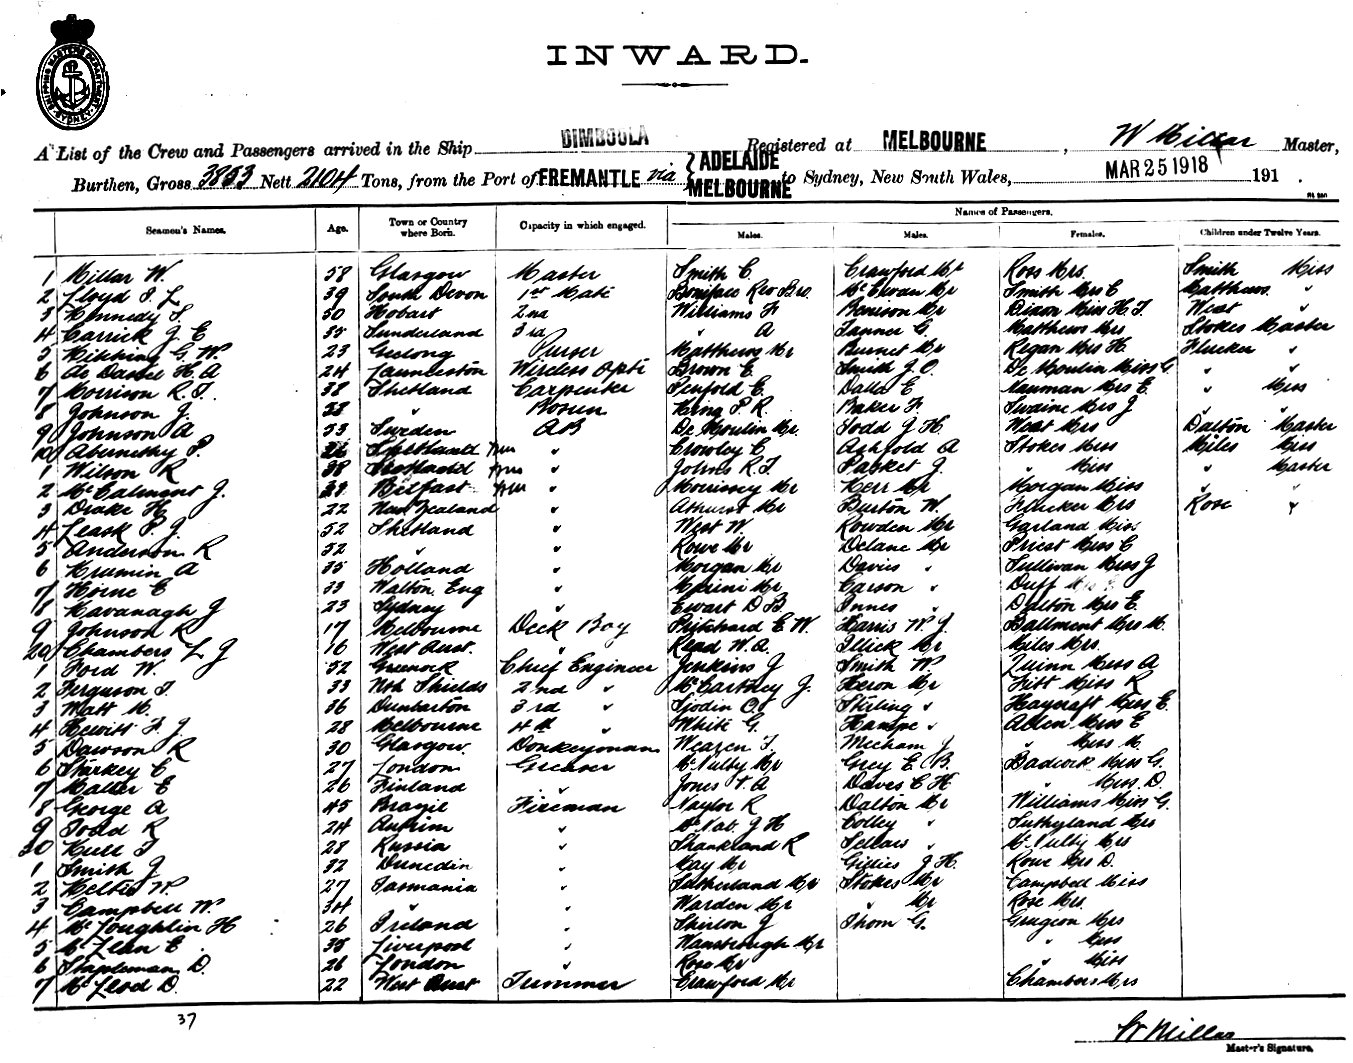 SHIPPING MASTERS DEPARTMENT SYDNEY
INWARD.
A List of the Crew and Passengers arrived in the Ship DIMBOOLA Registered at MELBOURNE, W Millar Master,
Burthen, Gross 3853 Nett 2104 Tons, from the Port of FREMANTLE via ADELAIDE MELBOURNE to Sydney, New South Wales, MAR 25 1918 191 .
Names of Passengers.
Seamen's Names. Age. Town or Country where Born. Capacity in which engaged. Males. Males. Females. Children under Twelve Years.
1 Millar W. 58 Glasgow Master Smith C. Crawford Mr Ross Mrs. Smith Miss
2 Lloyd 39 South Devon 1st Mate Boniface Rev Bro. McEwan Mr Smith Mrs C Matthews "
3 Kennedy 30 Hobart 2nd Williams F Benison Mr Dixon Miss H. F. West "
4 Carrick J E 35 Sunderland 3rd " A Tanner G. Matthews Mrs Stokes Master
5 G. W. 23 Geelong Purser Matthews Mr Burnet Mr Regan Miss H Flucker "
6 H. A 24 Launceston Wireless Opt Brown E. Smith J. O. De Moulin Miss G. " "
7 Morrison R. J. 38 Shetland Carpenter Penfold C. Dalla E Mauman Mrs E. " Miss
8 Johnson J. 58 " Bosun King P. R. Baker F. Swaine Mrs J " "
9 Johnson A 53 Sweden AB De Moulin Mr. Todd J H West Mrs Dalton Master
10 Abernethy P. 26 Shetland " Crowley C Ashfold A Stokes Miss Miles Miss
1 Wilson R 38 Scotland " Johns R. J Pasket J. " Miss " Master
2 McCalmont J. 29 Belfast " Morrissey Mr Kerr Mr Morgan Miss " "
3 Drake H 22 New Zealand " Athurst Mr Burton W. Flucker Mrs Rose "
4 Leask P. J. 52 Shetland " West W Rowden Mr Garland Miss
5 Anderson R 52 " " Rowe Mr Delane Mr Priest Miss C
6 Krumin A 35 Holland " Morgan Mr Davies " Sullivan Miss J
7 Horne C 33 Walton Eng " Mr Carson " Duff
8 Kavanagh J 23 Sydney " Ewart D B. Innes " Dalton Mrs E.
9 Johnson R. 17 Melbourne Deck Boy Pritchard E W. Harris W. J. Ballment Mrs M.
20 Chambers L J 16 West Aust. " Read W. A. Mr Miles Mrs.
1 Ford W. 52 Greenock Chief Engineer Jenkins J Smith W. Quinn Miss A
2 Ferguson J. 33 Nth Shields 2nd " McCartney J. Heron Mr Fitt Miss R
3 Watt M. 36 Dunbarton 3rd " Sjodin O. Stirling " Haycraft Miss E.
4 Hewitt F. J. 28 Melbourne 4th " White G. " Allen Miss E
5 Dawson R 30 Glasgow Donkeyman Wearen J. Mecham J " Miss M.
6 Starkey C 27 London Greaser McNulty Mr Grey E. B. Badcock Miss G.
7 E 26 Finland " Jones T. A Daves C H " Miss D.
8 George A 45 Brazil Fireman Naylor R Dalton Mr Williams Miss G.
9 Todd R 24 Antrim " McNab. J H Colley " Sutherland Mrs
30 28 Russia " Shankland R Sellars " McNulty Mrs
1 Smith J 32 Dunedin " May Mr Gillies J H. Rowe Mrs D.
2 W 27 Tasmania " Sutherland Mr Stokes Mr Campbell Miss
3 Campbell W. 34 " " Warden Mr " Mr Rose Mrs.
4 McLoughlin H 26 Ireland " J Thom G. Mrs
5 McLean E 35 Liverpool " Wansbrough Mr " Miss
6 Stapleman D. 26 London " Ross Mr " Miss
7 McLeod D. 22 West Aust Trimmer Crawford Mr Chambers Mrs
37
W Millar
Master's Signature.